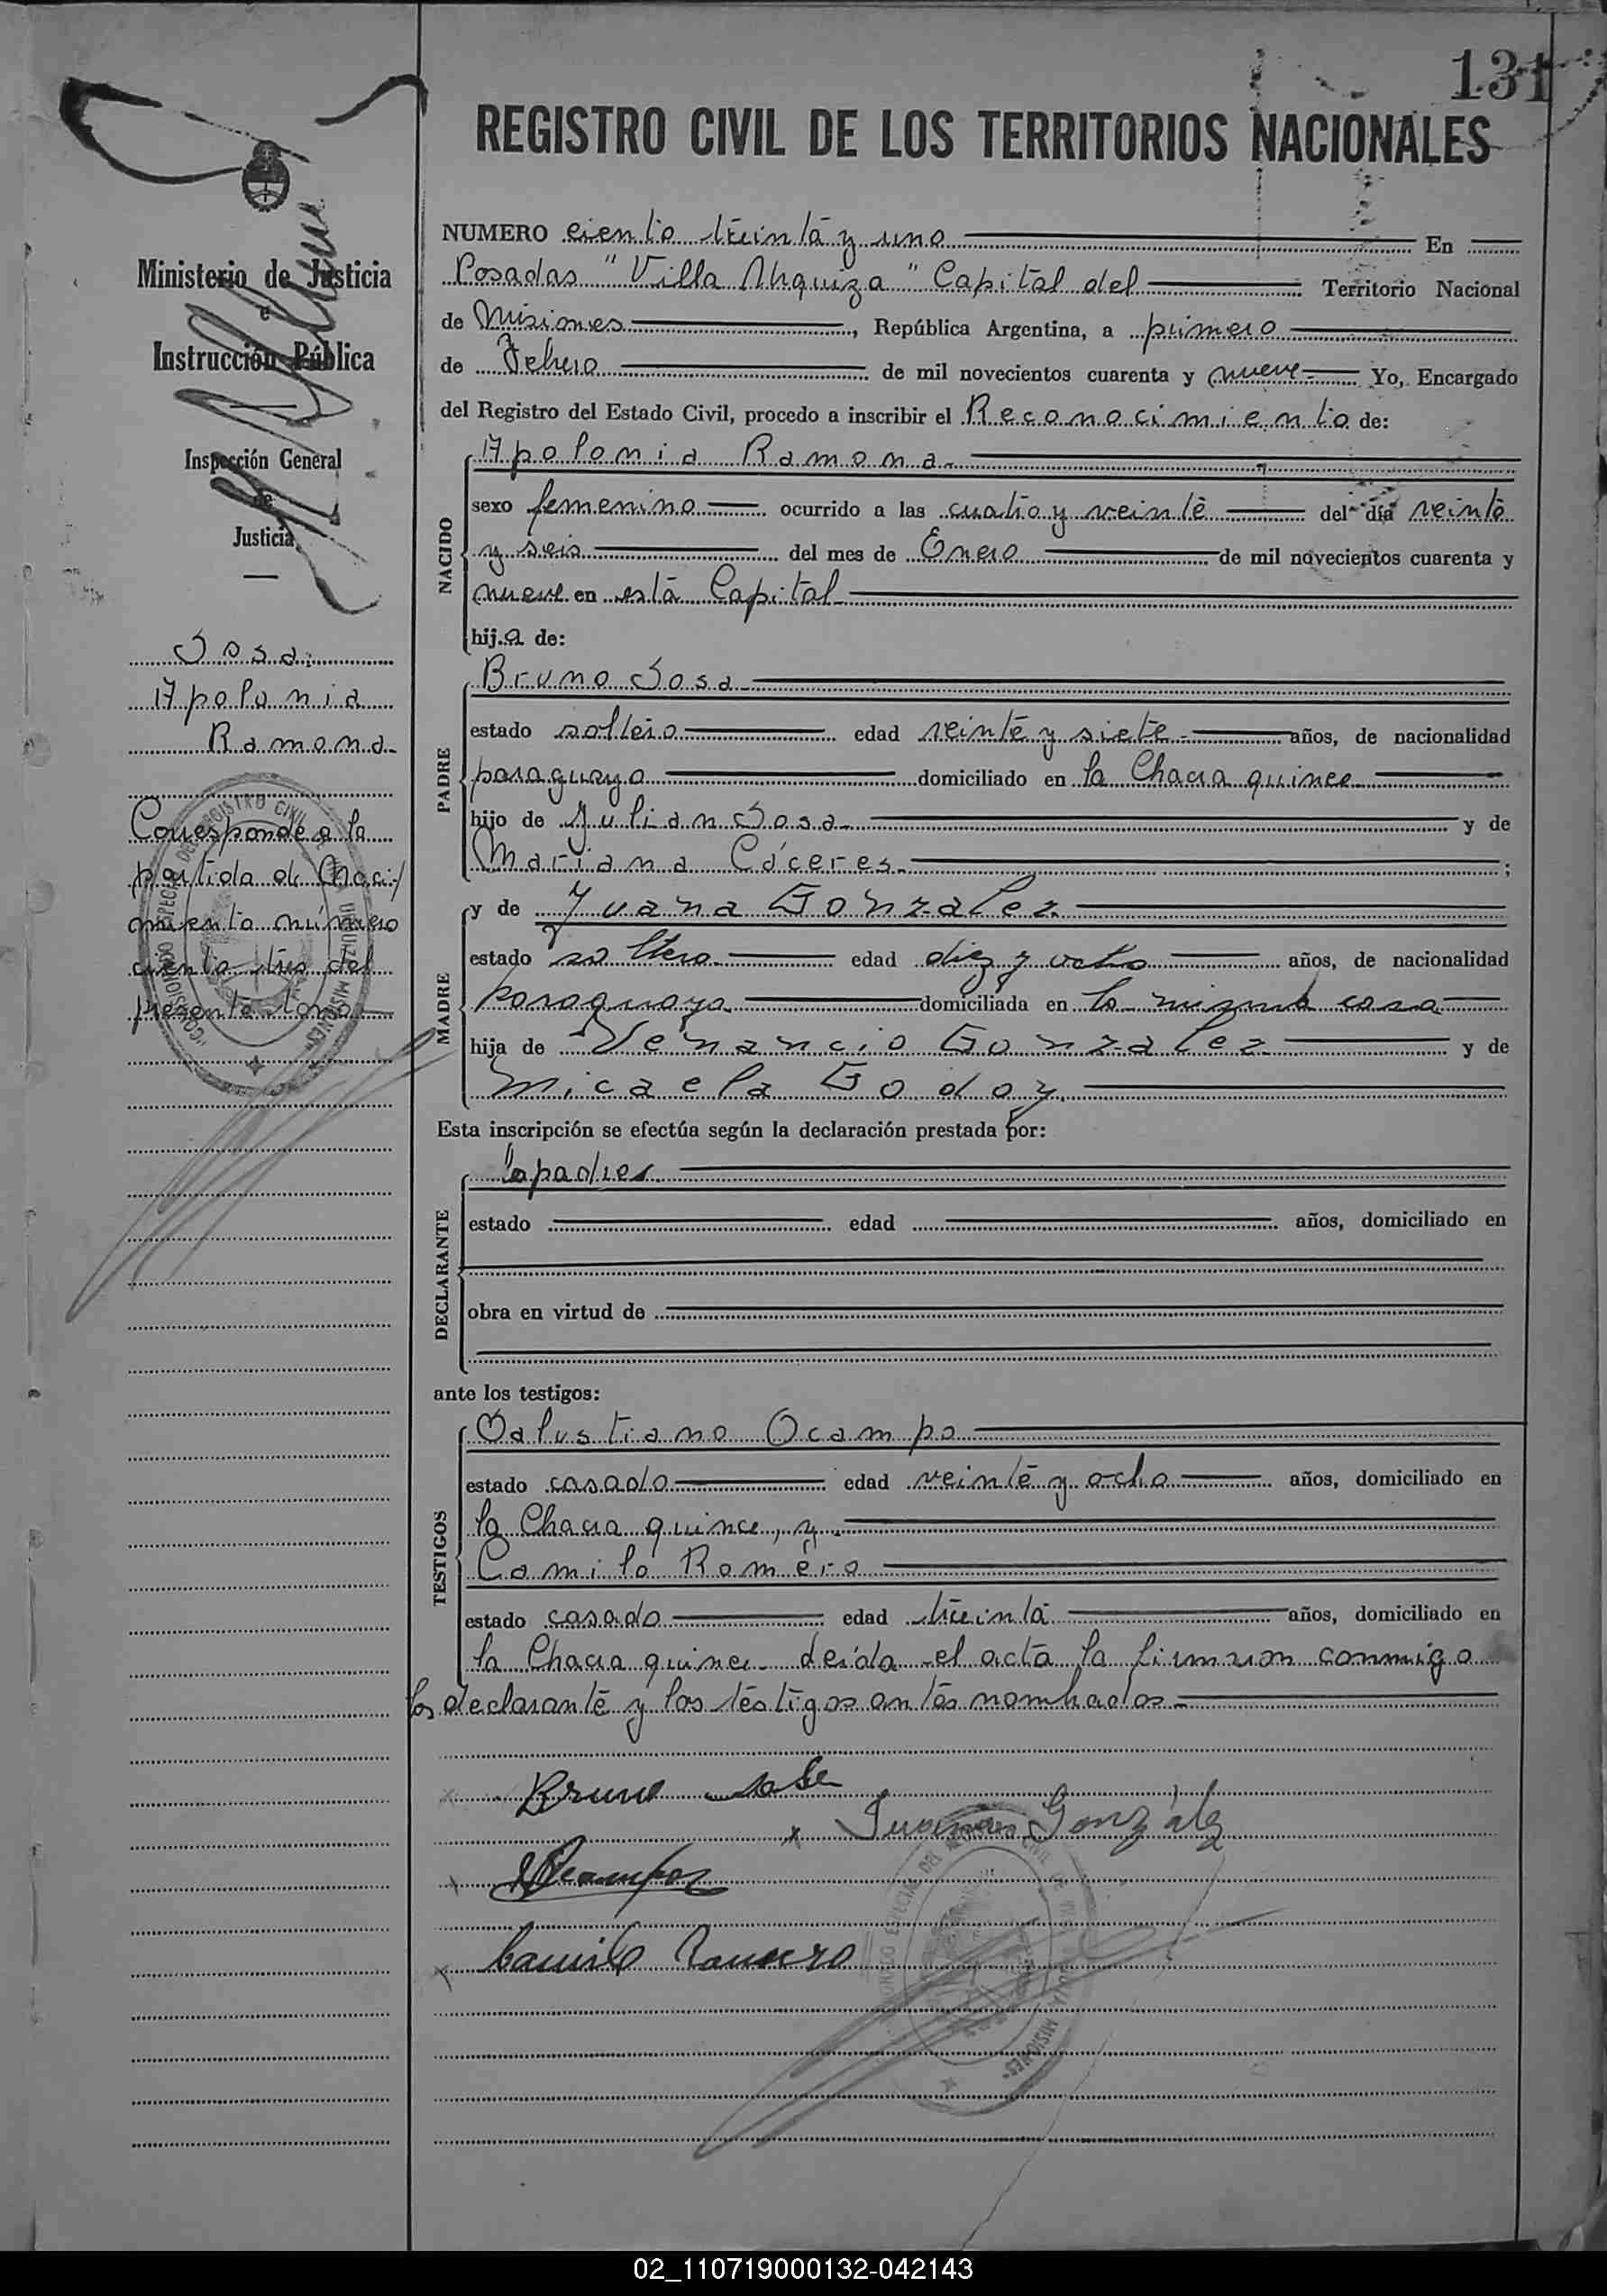 131
REGISTRO CIVIL DE LOS TERRITORIOS NACIONALES
Ministerio de Justicia
e
Instrucción Pública
Inspección General
de
Justicia
Sosa
Apolonia
Ramona
Corresponde a la
partida de Naci/
miento número
ciento tres del
presente tomo
NUMERO ciento treinta y uno En
Posadas "Villa Urquiza" Capital del Territorio Nacional
de Misiones, República Argentina, a primero
de Febrero de mil novecientos cuarenta y nueve Yo, Encargado
del Registro del Estado Civil, procedo a inscribir el Reconocimiento de:
NACIDO
Apolonia Ramona
sexo femenino ocurrido a las cuatro y veinte del día veinte
y seis del mes de Enero de mil novecientos cuarenta y
nueve en esta Capital
hija de:
PADRE
Bruno Sosa
estado soltero edad veinte y siete años, de nacionalidad
paraguayo domiciliado en la Chacra quince
hijo de Julian Sosa y de
Mariana Cáceres;
MADRE
y de Juana Gonzalez
estado soltera edad diez y ocho años, de nacionalidad
paraguaya domiciliada en la misma casa
hija de Venancio Gonzalez y de
Micaela Godoy
Esta inscripción se efectúa según la declaración prestada por:
DECLARANTE
padres
estado edad años, domiciliado en
obra en virtud de
ante los testigos:
TESTIGOS
Salustiano Ocampo
estado casado edad veinte y ocho años, domiciliado en
la Chacra quince, y
Camilo Romero
estado casado edad treinta años, domiciliado en
la Chacra quince. Leida el acta la firmaron conmigo
los declarante y los testigos antes nombrados
Bruno Sosa
Juana González
SOcampos
Camilo Romero
02_110719000132-042143